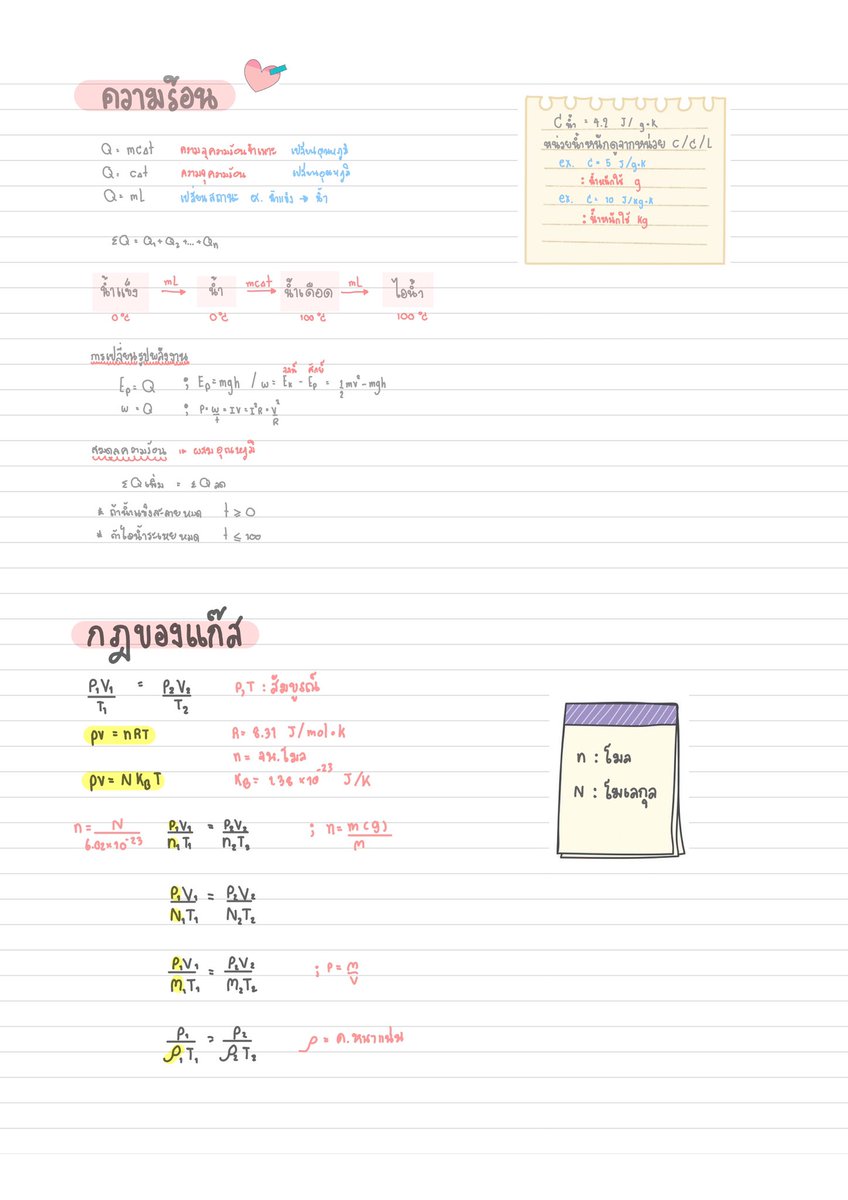 ความร้อน
Q = mcΔt ความจุความร้อนจำเพาะ เปลี่ยนอุณหภูมิ
Q = cΔt ความจุความร้อน เปลี่ยนอุณหภูมิ
Q = mL เปลี่ยนสถานะ ex. น้ำแข็ง → น้ำ
ΣQ = Q₁+Q₂+...+Qn
C น้ำ = 4.2 J/g•K
หน่วยน้ำหนักดูจากหน่วย c/C/L
ex. C = 5 J/g•K
: น้ำหนักใช้ g
ex. C = 10 J/kg•K
: น้ำหนักใช้ kg
น้ำแข็ง mL → น้ำ mcΔt → น้ำเดือด mL → ไอน้ำ
0°C 0°C 100°C 100°C
การเปลี่ยนรูปพลังงาน
จลน์ ศักย์
Ep = Q ; Ep = mgh / w = Ek - Ep = 1/2 mv² - mgh
w = Q ; P = w/t = IV = I²R = V²/R
สมดุลความร้อน → ผสมอุณหภูมิ
ΣQ เพิ่ม = ΣQ ลด
* ถ้าน้ำแข็งละลายหมด t ≥ 0
* ถ้าไอน้ำระเหยหมด t ≤ 100
กฎของแก๊ส
P₁V₁/T₁ = P₂V₂/T₂ P,T : สัมบูรณ์
PV = nRT R = 8.31 J/mol•K
n = จน.โมล
PV = NK_BT K_B = 1.38×10⁻²³ J/K
n : โมล
N : โมเลกุล
n = N/6.02×10⁻²³ P₁V₁/n₁T₁ = P₂V₂/n₂T₂ ; n = m(g)/M
P₁V₁/N₁T₁ = P₂V₂/N₂T₂
P₁V₁/m₁T₁ = P₂V₂/m₂T₂ ; ρ = m/V
P₁/ρ₁T₁ = P₂/ρ₂T₂ ρ = ค.หนาแน่น